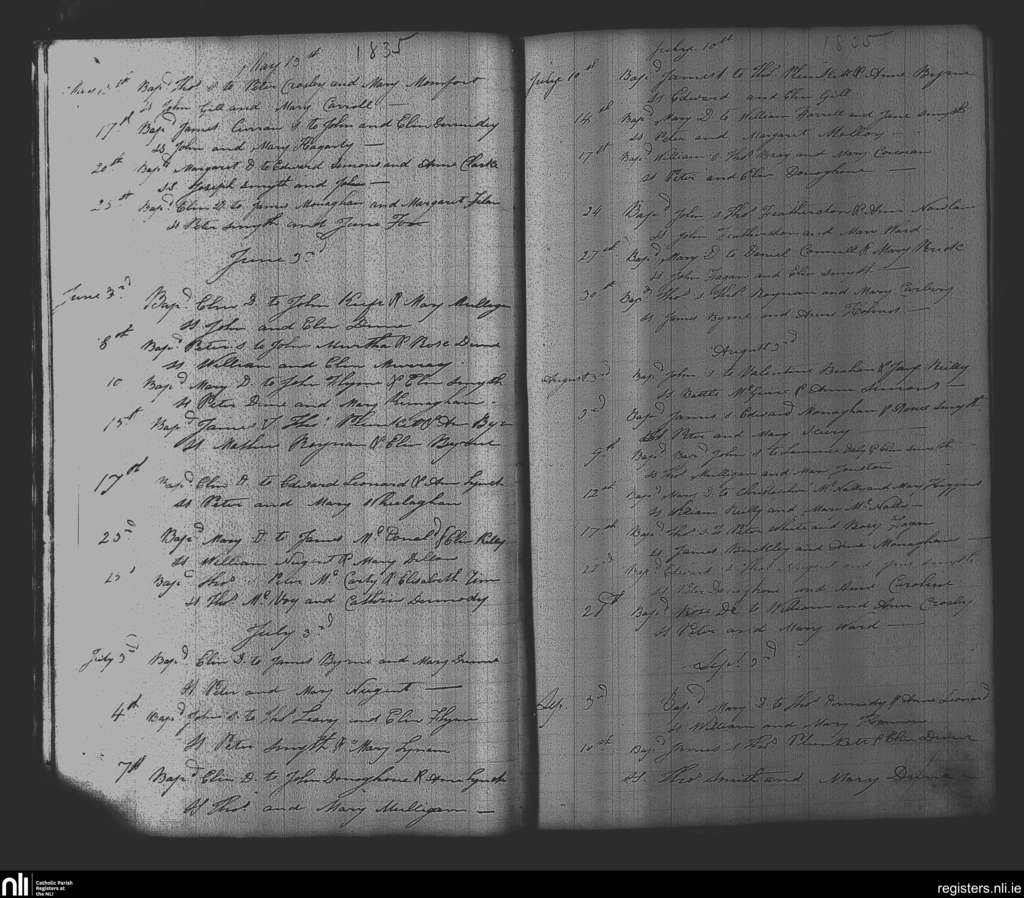 May 13th 1835
Bapd Thos S to Peter Crosby and Mary Momfort
Ss John Gill and Mary Carroll
17th Bapd James Curran S to John and Elin Dermudey
Ss John and Mary Hagarty
20th Bapd Margaret D to Edward Simons and Anne Clarke
Ss Joseph Smyth and John
25th Bapd Elin D. to James Monaghan and Margaret
Ss Peter Smyth and June Fox
June 3rd
June 3rd Bapd Elin D. to John Keefe & Mary
Ss John and Elin Dunne
8th Bapd Peter S to John Murtha & Rose Dunne
Ss William and Elin Murray
10 Bapd Mary D. to John Flynn & Elin Smyth
Ss Peter Dunne and Mary
15th Bapd James S Thos Plunkett & Ann
Ss Mathew Roynan & Elin Byrne
17th Bapd Elin D. to Edward Leonard & Ann Lynch
Ss Peter and Mary Whelaghan
23rd Bapd Mary D. to James Mc Donald & Elin Riley
Ss William Nugent & Mary Dillon
Bapd Thos S Peter Mc Carty & Elisabeth
Ss Thos Mc Voy and Cathrin Dermody
July 3rd
July 3rd Bapd Elin D. to James Byrne and Mary Dunne
Ss Peter and Mary Nugent
4th Bapd John S to Thos Leavy and Elin Flynn
Ss Peter Smyth & Mary Lynam
7th Bapd Elin D. to John Donoghoue & Anne Lynch
Ss Thos and Mary Mulligan
July 10th 1835
July 10th Bapd James S to Thos Plunkett & Anne Byrne
Ss Edward and Elin Gill
14th Bapd Mary D to William Farrell and Jane Smyth
Ss Peter and Margaret Malloy
17th Bapd William S Thos Bray and Mary Corcoran
Ss Peter and Elin Donoghoue
24 Bapd John S Thos Featherston & Anne Nowlan
Ss John Featherston and Mary Ward
27th Bapd Mary D to Daniel Connell & Mary
Ss John Fagan and Elin
30th Bapd Thos S Thos Roynan and Mary
Ss James Byrne and Anne Holmes
August 3rd
August 3rd Bapd John S to Valentine & Jane Reilly
Ss Mc Guire & Anne Simons
3rd Bapd James S Edward Monaghan & Rose Smyth
Ss Peter and Mary
9th Bapd John S to Laurence Daly & Elin Smyth
Ss Thos Mulligan and Mary
12th Bapd Mary D. to Christopher Mc Nally and Mary Higgins
Ss William Reilly and Mary Mc Nally
17th Bapd Thos S to Peter White and Mary Fagan
Ss James Buckley and Anne Monaghan
Bapd Edward S Thos Nugent and Jane Smyth
Ss Peter Donoghoue and Anne
Bapd Rose D. to William and Ann Crosby
Ss Peter and Mary Ward
Sept 3rd
Sep. 3rd Bapd Mary D to Thos & Anne Leonard
Ss William and Mary
10th Bapd James S Thos Plunkett & Elin Dunne
Ss. Thos Smith and Mary Dunne
nli Catholic Parish
Registers at
the NLI
registers.nli.ie